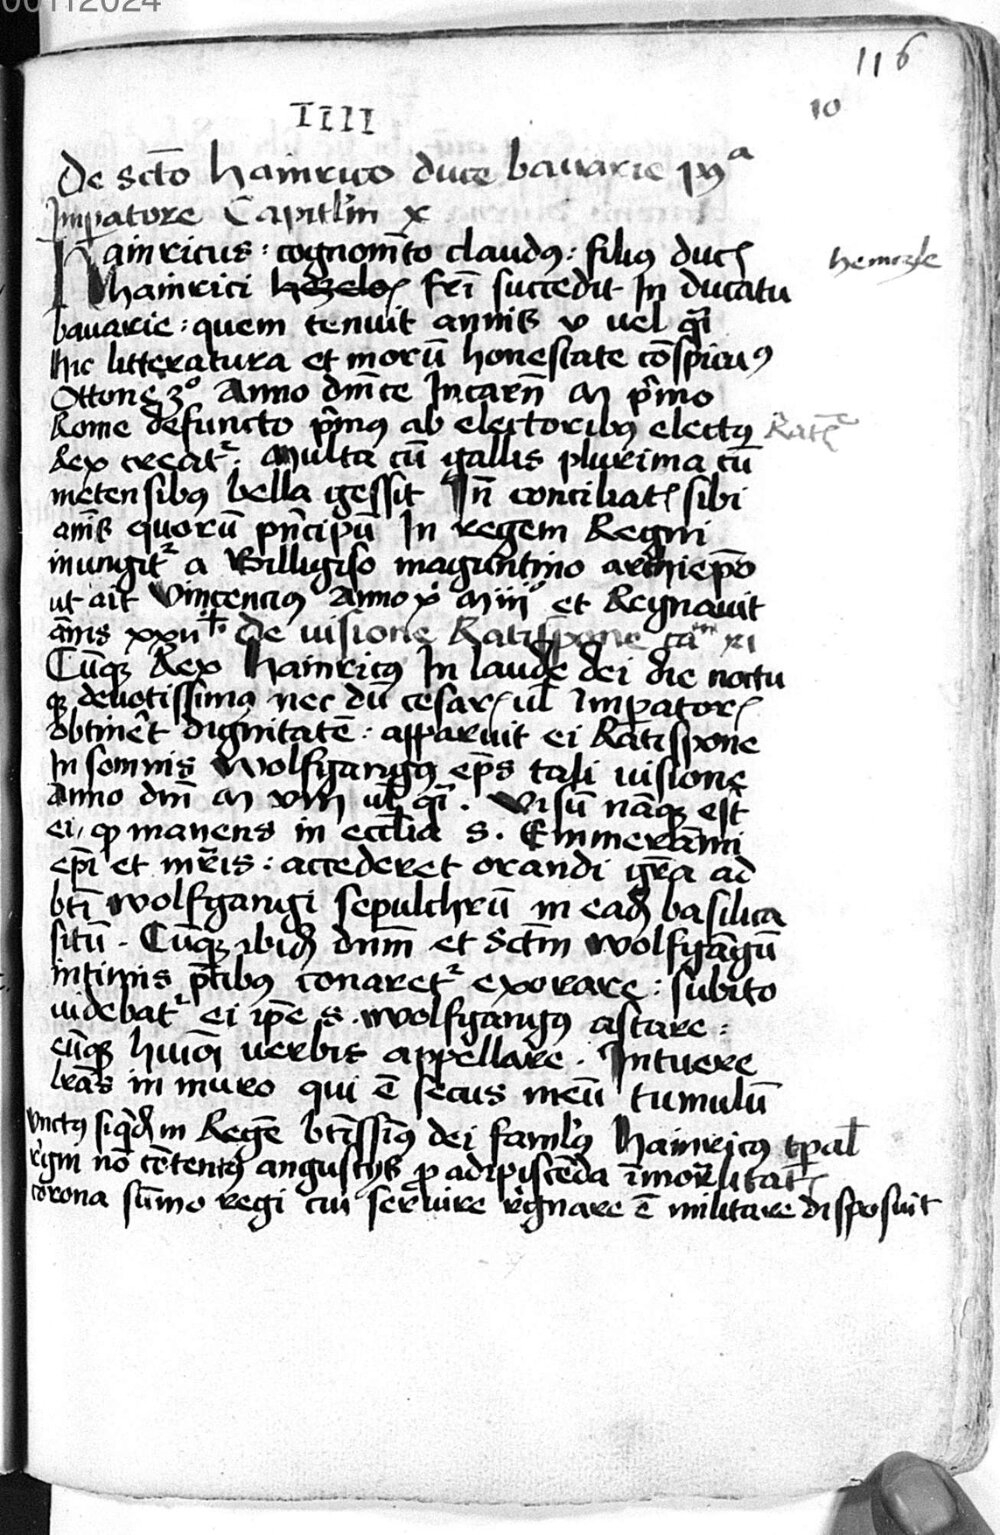 00112024
116
10
IIII
De sct̄o hainrico duce bavarie
Imp̄atore Capitl'm x
Hainricus : cognom̄to claudꝰ : filiꝰ ducꝭ
hemezle
hainrici hezeloꝭ fr̄i succedit In ducatu
bavarie : quem tenuit annis v vel
hic litteratura et morū honestate cōspicuꝰ
Ottone 3º Anno dn̄ice Incarn̄ M p̄mo
Rome defuncto p̄mꝰ ab electoribꝰ electꝰ
Ratꝭ
Rex creat᷑ : Multa cū gallis plurima cū
metensibꝰ bella gessit In̄ conciliatꝭ sibi
quorū pn̄cipū In regem Regni
inungit᷑ a Billigiso maguntino archiep̄o
ut ait Vincencius Anno et Regnavit
an̄is xxii De visione Ratispone ca᷑ xi
Cūqꝫ Rex hainricꝰ In laude dei die noctu
qꝫ devotissimꝰ nec dū cesarꝭ ul̄ Imperatorꝭ
obtineret dignitatē : apparuit ei Ratispone
In somnis Wolfgangꝰ ep̄s tali visione
Anno dn̄i M . Visū nāqꝫ est
ei, ꝙ manens in eccl̄ia s. Emmerāmi
ep̄i et mr̄is : accederet orandi gr̄a ad
bt̄i wolfgangi sepulchrū in eadꝫ basilica
sitū . Cūqꝫ ibidꝫ dnm̄ et sctm̄ wolfgāgū
intimis p̄cibꝰ conaret᷑ exorare : subito
videbat᷑ ei ip̄e s. wolfgangꝰ astare :
eūqꝫ huiꝰ verbis appellare . Intuere
lr̄as in muro qui ē secus meū tumulū
Unctꝰ siqͥdꝫ in Regē bt̄issimꝰ dei famulꝰ hainricꝰ tp̄al̄
nō cōtentꝰ angustiis ꝓ adipiscēda īmortalitatꝭ
corona sūmo regi cui servire regnare ē militare disposuit